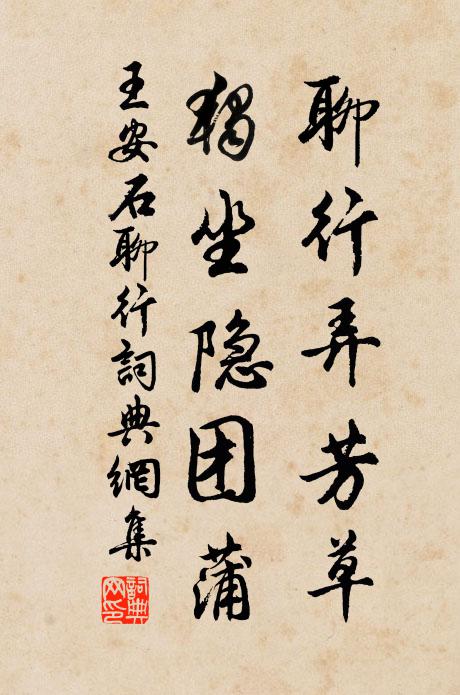 聊行弄芳草
獨坐隐团蒲
王安石聊行詞典網集
詞典網印